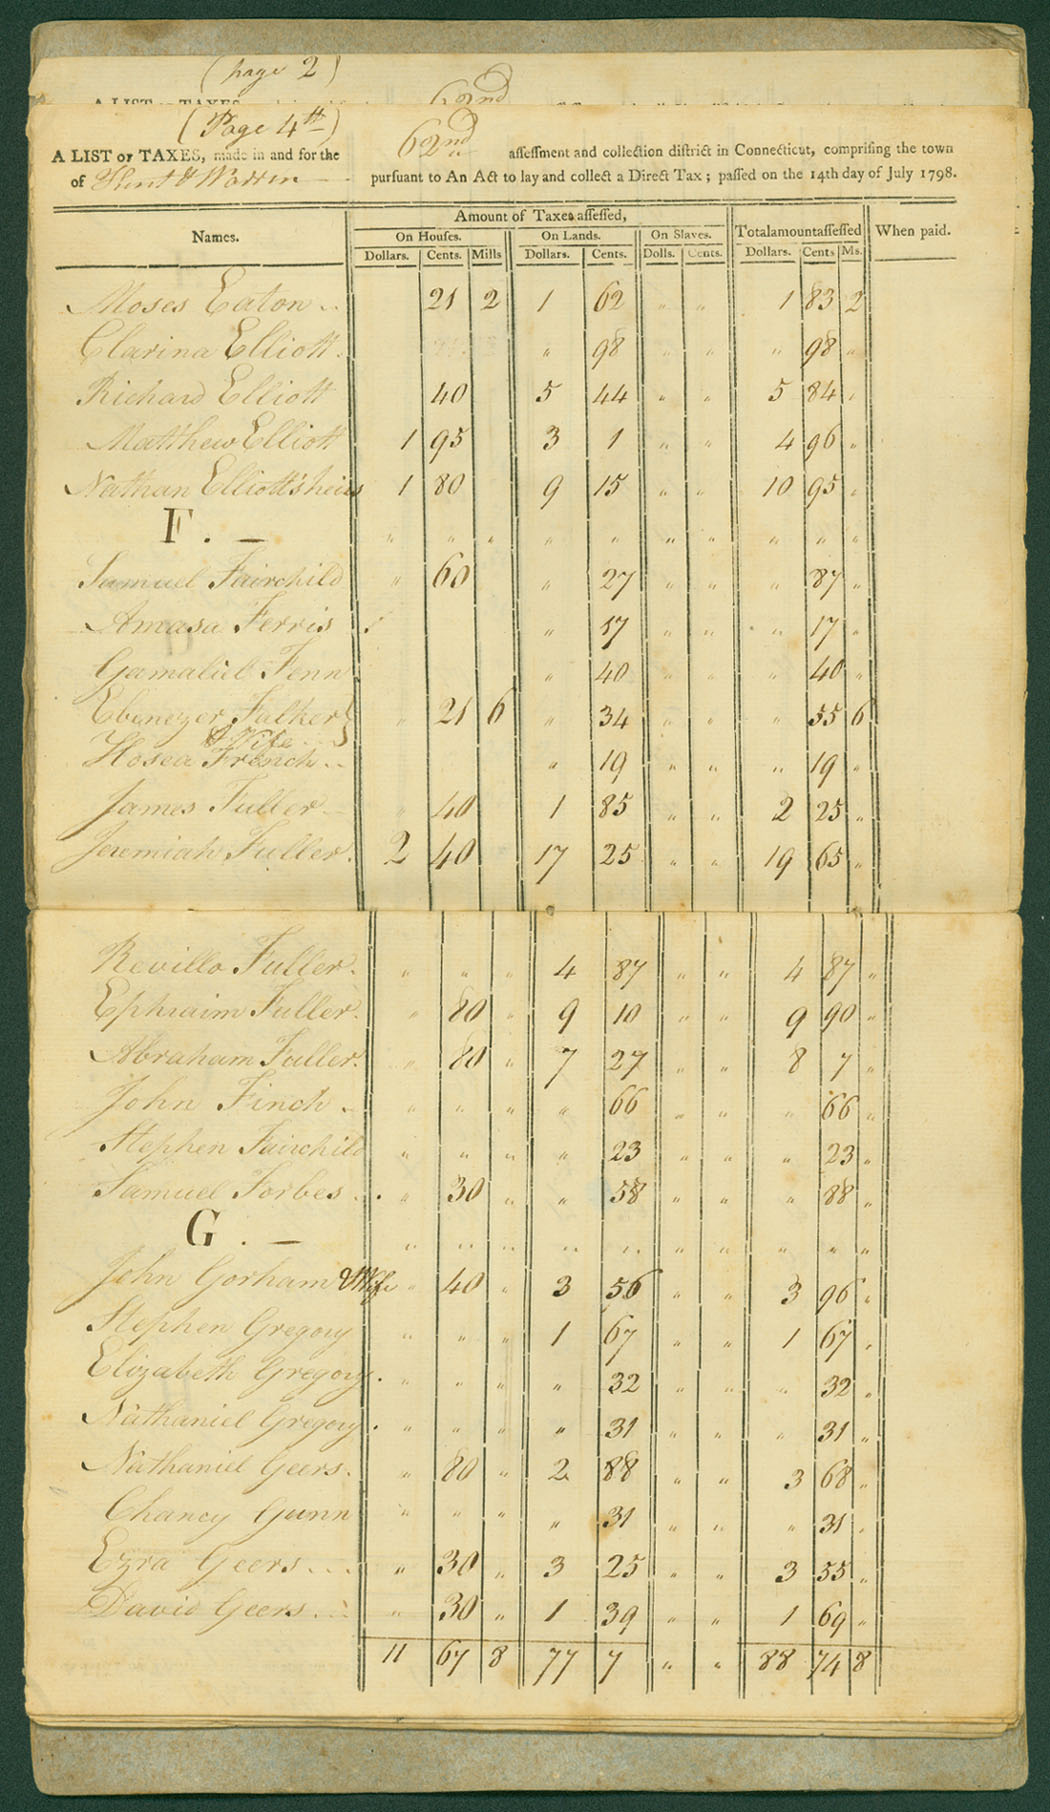 (page 2)
A LIST OF TAXES 62nd
(Page 4th)
A LIST OF TAXES, made in and for the 62nd assessment and collection district in Connecticut, comprising the town
of Kent & Warren pursuant to An Act to lay and collect a Direct Tax; passed on the 14th day of July 1798.
Amount of Taxes assessed,
Names. On Houses. On Lands. On Slaves. Total amount assessed When paid.
Dollars. Cents. Mills Dollars. Cents. Dolls. Cents. Dollars. Cents Ms.
Moses Eaton .. 21 2 1 62 " " 1 83 2
Clarina Elliott . " 98 " " " 98 "
Richard Elliott 40 5 44 " " 5 84 "
Matthew Elliott 1 95 3 1 " " 4 96 "
Nathan Elliott's heirs 1 80 9 15 " " 10 95 "
F . — " " " " " " " " " "
Samuel Fairchild " 60 " 27 " " " 87 "
Amasa Ferris " 17 " " " 17 "
Gamaliel Fenn " 40 " " " 40 "
Ebenezer Falker } " 21 6 " 34 " " " 55 6
& Wife
Hosea French .. " 19 " " " 19 "
James Fuller " 40 1 85 " " 2 25 "
Jeremiah Fuller. 2 40 17 25 " " 19 65 "
Revillo Fuller. " " " 4 87 " " 4 87 "
Ephraim Fuller. " 80 " 9 10 " " 9 90 "
Abraham Fuller. " 80 " 7 27 " " 8 7 "
John Finch . " " " " 66 " " " 66 "
Stephen Fairchild " " " " 23 " " " 23 "
Samuel Forbes .. " 30 " " 58 " " " 88 "
G . — " " " " " " " " " "
John Gorham & Wife " 40 " 3 56 " " 3 96 "
Stephen Gregory " " " 1 67 " " 1 67 "
Elizabeth Gregory. " " " " 32 " " " 32 "
Nathaniel Gregory . " " " " 31 " " " 31 "
Nathaniel Geers. " 80 " 2 88 " " 3 68 "
Chancy Gunn " " " " 31 " " " 31 "
Ezra Geers ... " 30 " 3 25 " " 3 55 "
David Geers ... " 30 " 1 39 " " 1 69 "
11 67 8 77 7 " " 88 74 8